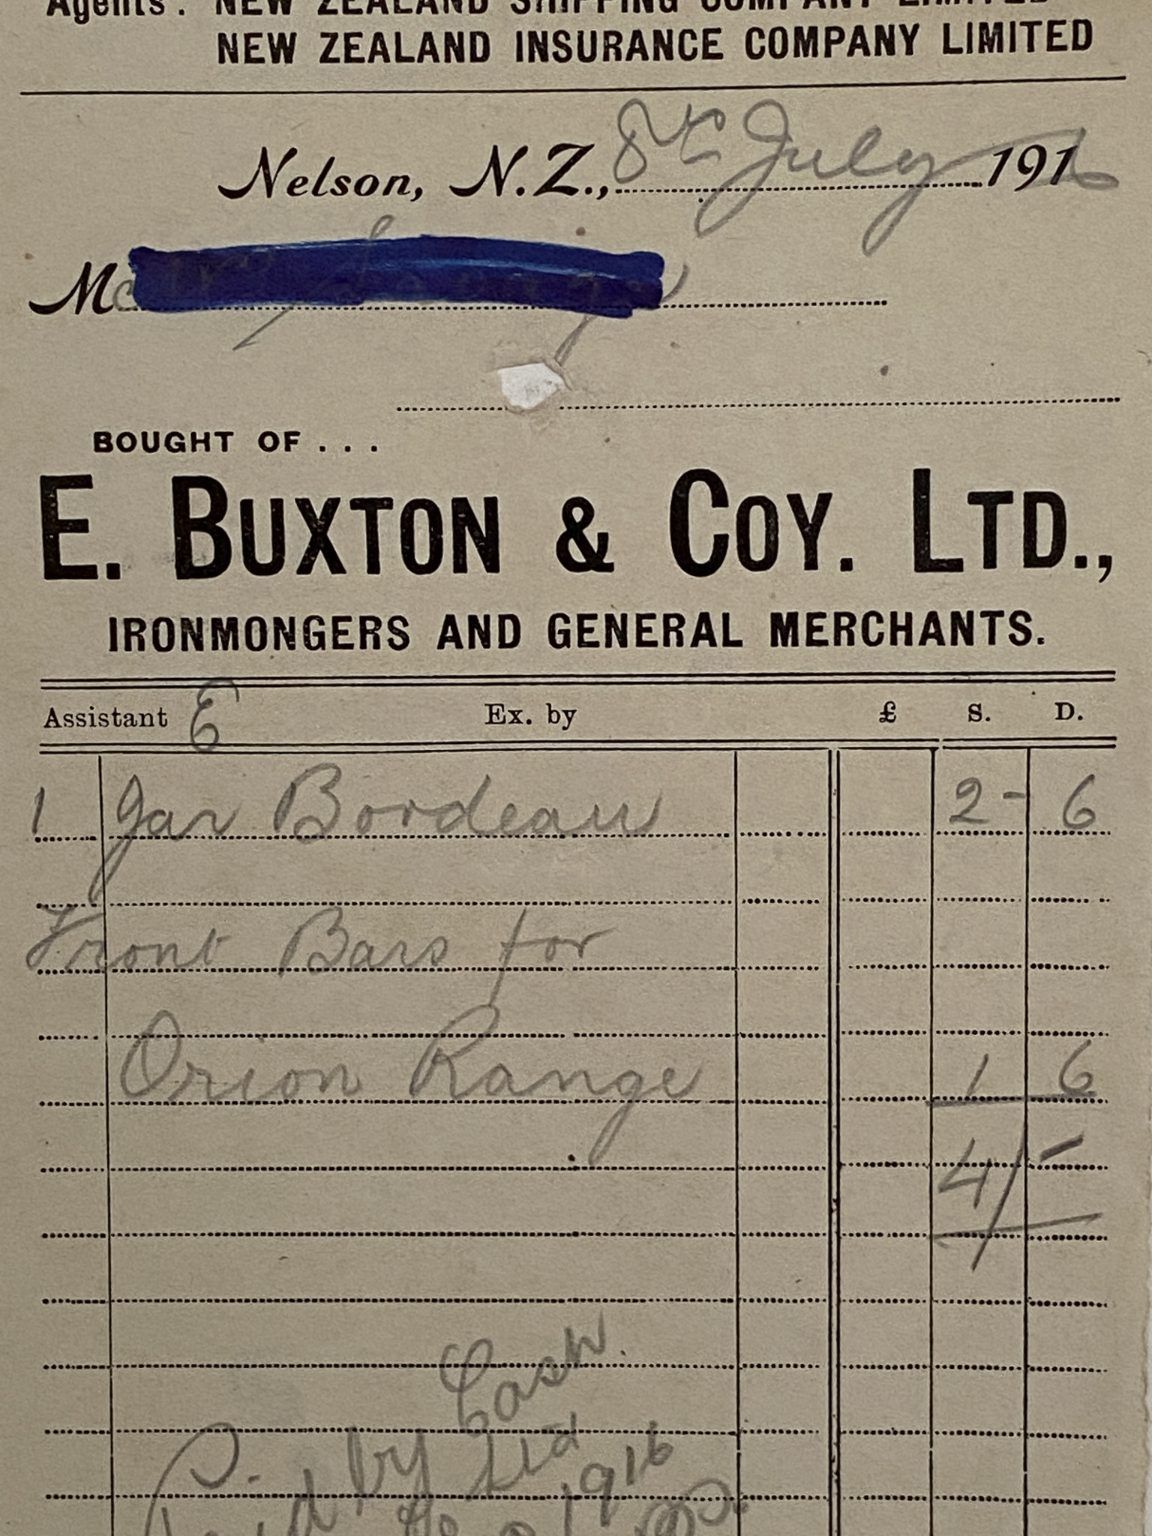 Agents: NEW ZEALAND SHIPPING COMPANY LIMITED
NEW ZEALAND INSURANCE COMPANY LIMITED
Nelson, N.Z., 8th July 1916
M
BOUGHT OF . . .
E. BUXTON & COY. LTD.,
IRONMONGERS AND GENERAL MERCHANTS.
Assistant E Ex. by £ S. D.
1 Jar Bordeau 2 - 6
Front Bars for
Orion Range 1 6
4/-
Cash
Paid by
1916